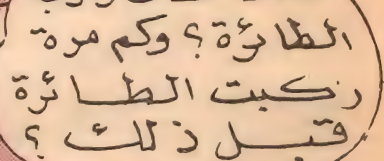 الطائرة ؟ وكم مرة
ركبت الطائرة
قبل ذلك ؟